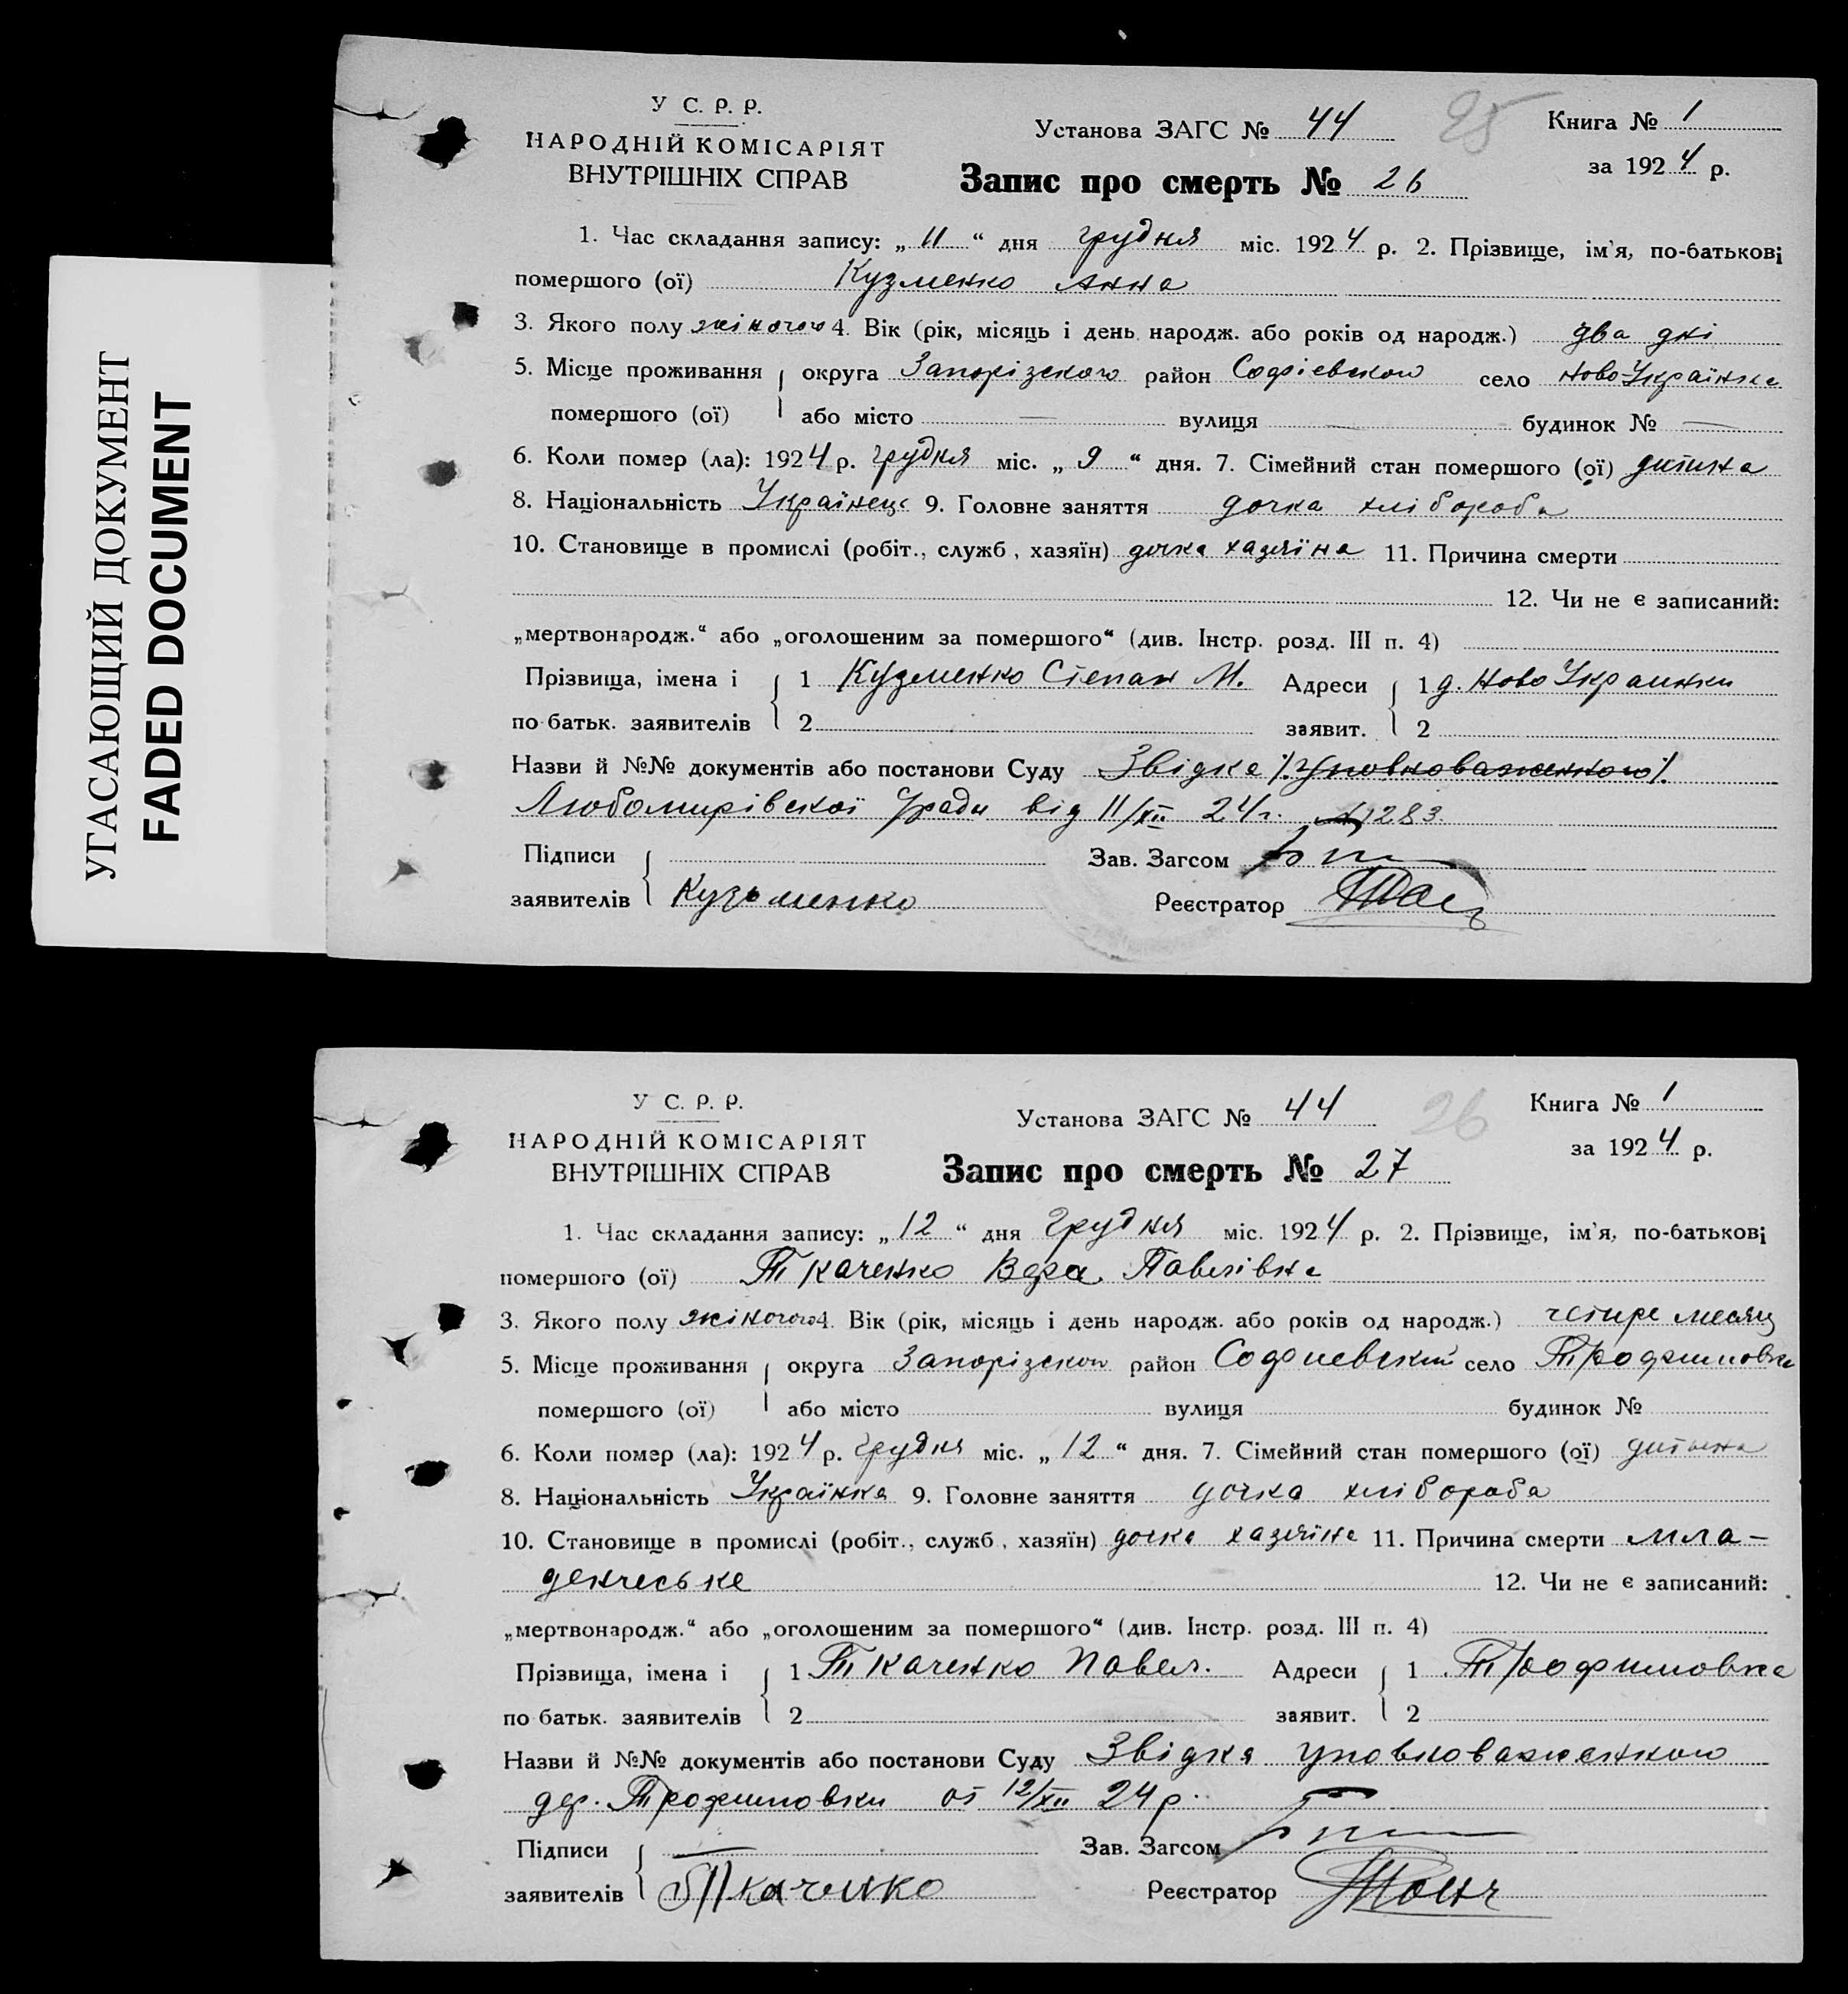 УГАСАЮЩИЙ ДОКУМЕНТ
FADED DOCUMENT
У С. Р. Р.
НАРОДНІЙ КОМІСАРІЯТ
ВНУТРІШНІХ СПРАВ
Установа ЗАГС № 44
25
Книга № 1
за 1924 р.
Запис про смерть № 26
1. Час складання запису: „11“ дня грудня міс. 1924 р. 2. Прізвище, ім'я, по-батькові
помершого (ої) Кузменко Анна
3. Якого полу жіночого 4. Вік (рік, місяць і день народж. або років од народж.) два дні
5. Місце проживання округа Запорізского район Софіевского село Ново Українка
помершого (ої) або місто — вулиця — будинок № —
6. Коли помер (ла): 1924 р. грудня міс. „9“ дня. 7. Сімейний стан помершого (ої) дитина
8. Національність Українець 9. Головне заняття дочка хлібороба
10. Становище в промислі (робіт., служб, хазяїн) дочка хазяїна 11. Причина смерти
12. Чи не є записаний:
„мертвонародж.“ або „оголошеним за помершого“ (див. Інстр. розд. III п. 4)
Прізвища, імена і 1 Кузменко Степан М. Адреси 1 д. Ново Украинки
по-батьк. заявителів 2 заявит. 2
Назви й №№ документів або постанови Суду Звідка /. Уповноваженного /.
Любомирівскої Уради від 11/XII 24 г. № 1283.
Підписи Зав. Загсом
заявителів Кузьменко Реєстратор
У С. Р. Р.
НАРОДНІЙ КОМІСАРІЯТ
ВНУТРІШНІХ СПРАВ
Установа ЗАГС № 44
26
Книга № 1
за 1924 р.
Запис про смерть № 27
1. Час складання запису: „12“ дня грудня міс. 1924 р. 2. Прізвище, ім'я, по-батькові
помершого (ої) Ткаченко Вера Павлівна
3. Якого полу жіночого 4. Вік (рік, місяць і день народж. або років од народж.) четире месяц
5. Місце проживання округа Запорізског район Софиевский село Трофимовка
помершого (ої) або місто вулиця будинок №
6. Коли помер (ла): 1924 р. грудня міс. „12“ дня. 7. Сімейний стан помершого (ої) дитина
8. Національність Українка 9. Головне заняття дочка хлібороба
10. Становище в промислі (робіт., служб, хазяїн) дочка хазяїна 11. Причина смерти мла-
денческе 12. Чи не є записаний:
„мертвонародж.“ або „оголошеним за помершого“ (див. Інстр. розд. III п. 4)
Прізвища, імена і 1 Ткаченко Павел. Адреси 1 Трофимовка
по батьк. заявителів 2 заявит. 2
Назви й №№ документів або постанови Суду Звідка уповноваженного
дер. Трофимовки от 12/XII 24 р.
Підписи Зав. Загсом
заявителів Ткаченко Реєстратор